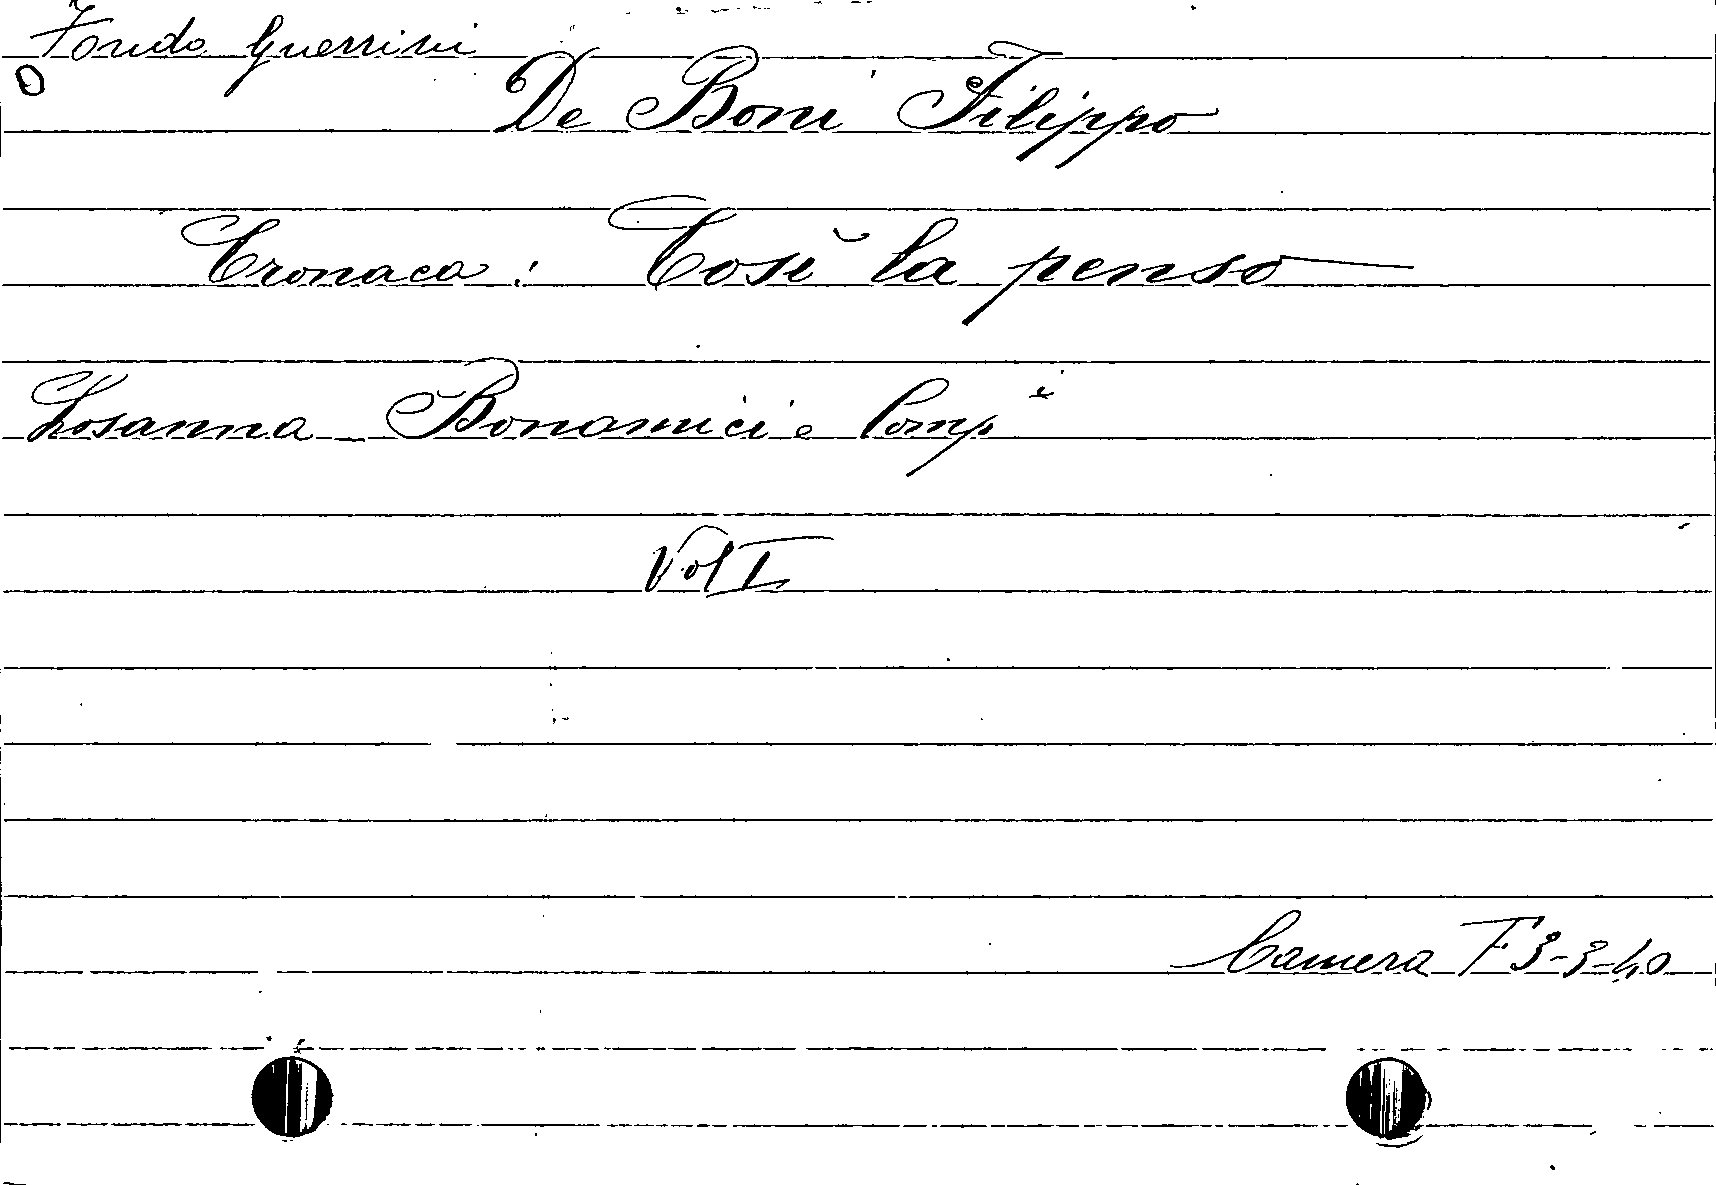 Fondo Guerrini
De Boni Filippo
Cronaca: Così la penso
Losanna - Bonamici e Comp
Vol I
Camera F 3-3-40